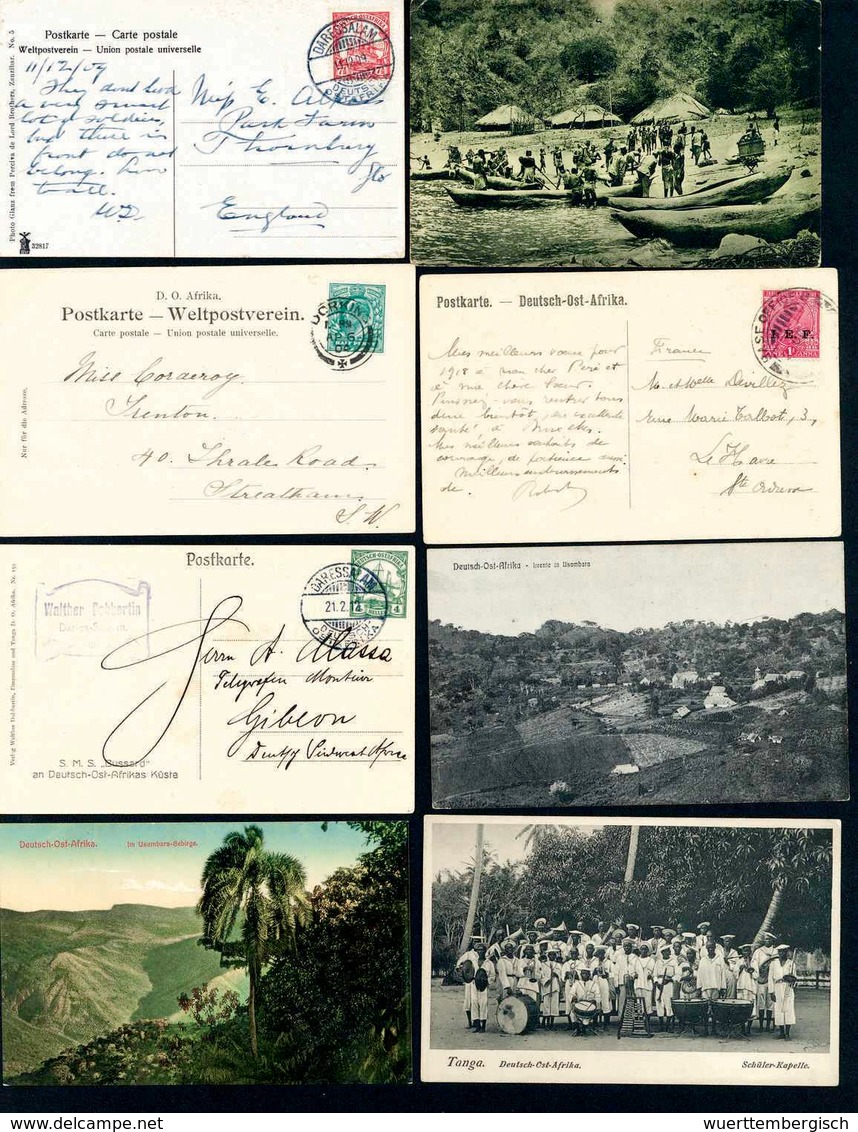 Postkarte — Carte postale
Weltpostverein — Union postale universelle
11/12/09
They dont look
a very smart
lot of soldiers,
but there is
front do not
belong
W.D.
Miss E.
Park Farm
Thornbury
Glo
England
DARESSALAM
DEUTSCH-
OSTAFRIKA
Photo Glanz from Pereira de Lord Brothers, Zanzibar. No. 5
32817
D. O. Afrika.
Postkarte — Weltpostverein.
Carte postale — Union postale universelle.
DORKING
Nur für die Adresse.
Miss Corderoy
Trenton.
40. Thrale Road
Streatham.
S.W.
Postkarte. — Deutsch-Ost-Afrika.
I. E. F.
1A ANNA
Mes meilleurs vœux pour
1918 à mon cher Père et
à ma chère Sœur.
Puissiez-vous rentrer tous
santé à Bruxelles.
Mes meilleurs souhaits de
courage, de patience aussi.
Meilleurs embrassements
de.
France
Rue Marie Talbot, 3,
Le Havre
Ste Adresse
Postkarte.
Walther Dobbertin
Dar-es-Salaam.
DEUTSCH-OSTAFRIKA
4 HELLER
DARESSALAM
21.2.14
Herrn A. Massa
Telegrafen Monteur
Gibeon
Deutsch Südwest Africa
S. M. S. „Bussard"
an Deutsch-Ost-Afrikas Küste
Verlag Walther Dobbertin, Daressalam und Tanga D. O. Afrika.
Deutsch-Ost-Afrika - Irente in Usambara
Deutsch-Ost-Afrika. Im Usambara-Gebirge.
Tanga. Deutsch-Ost-Afrika. Schüler-Kapelle.
wuerttembergisch